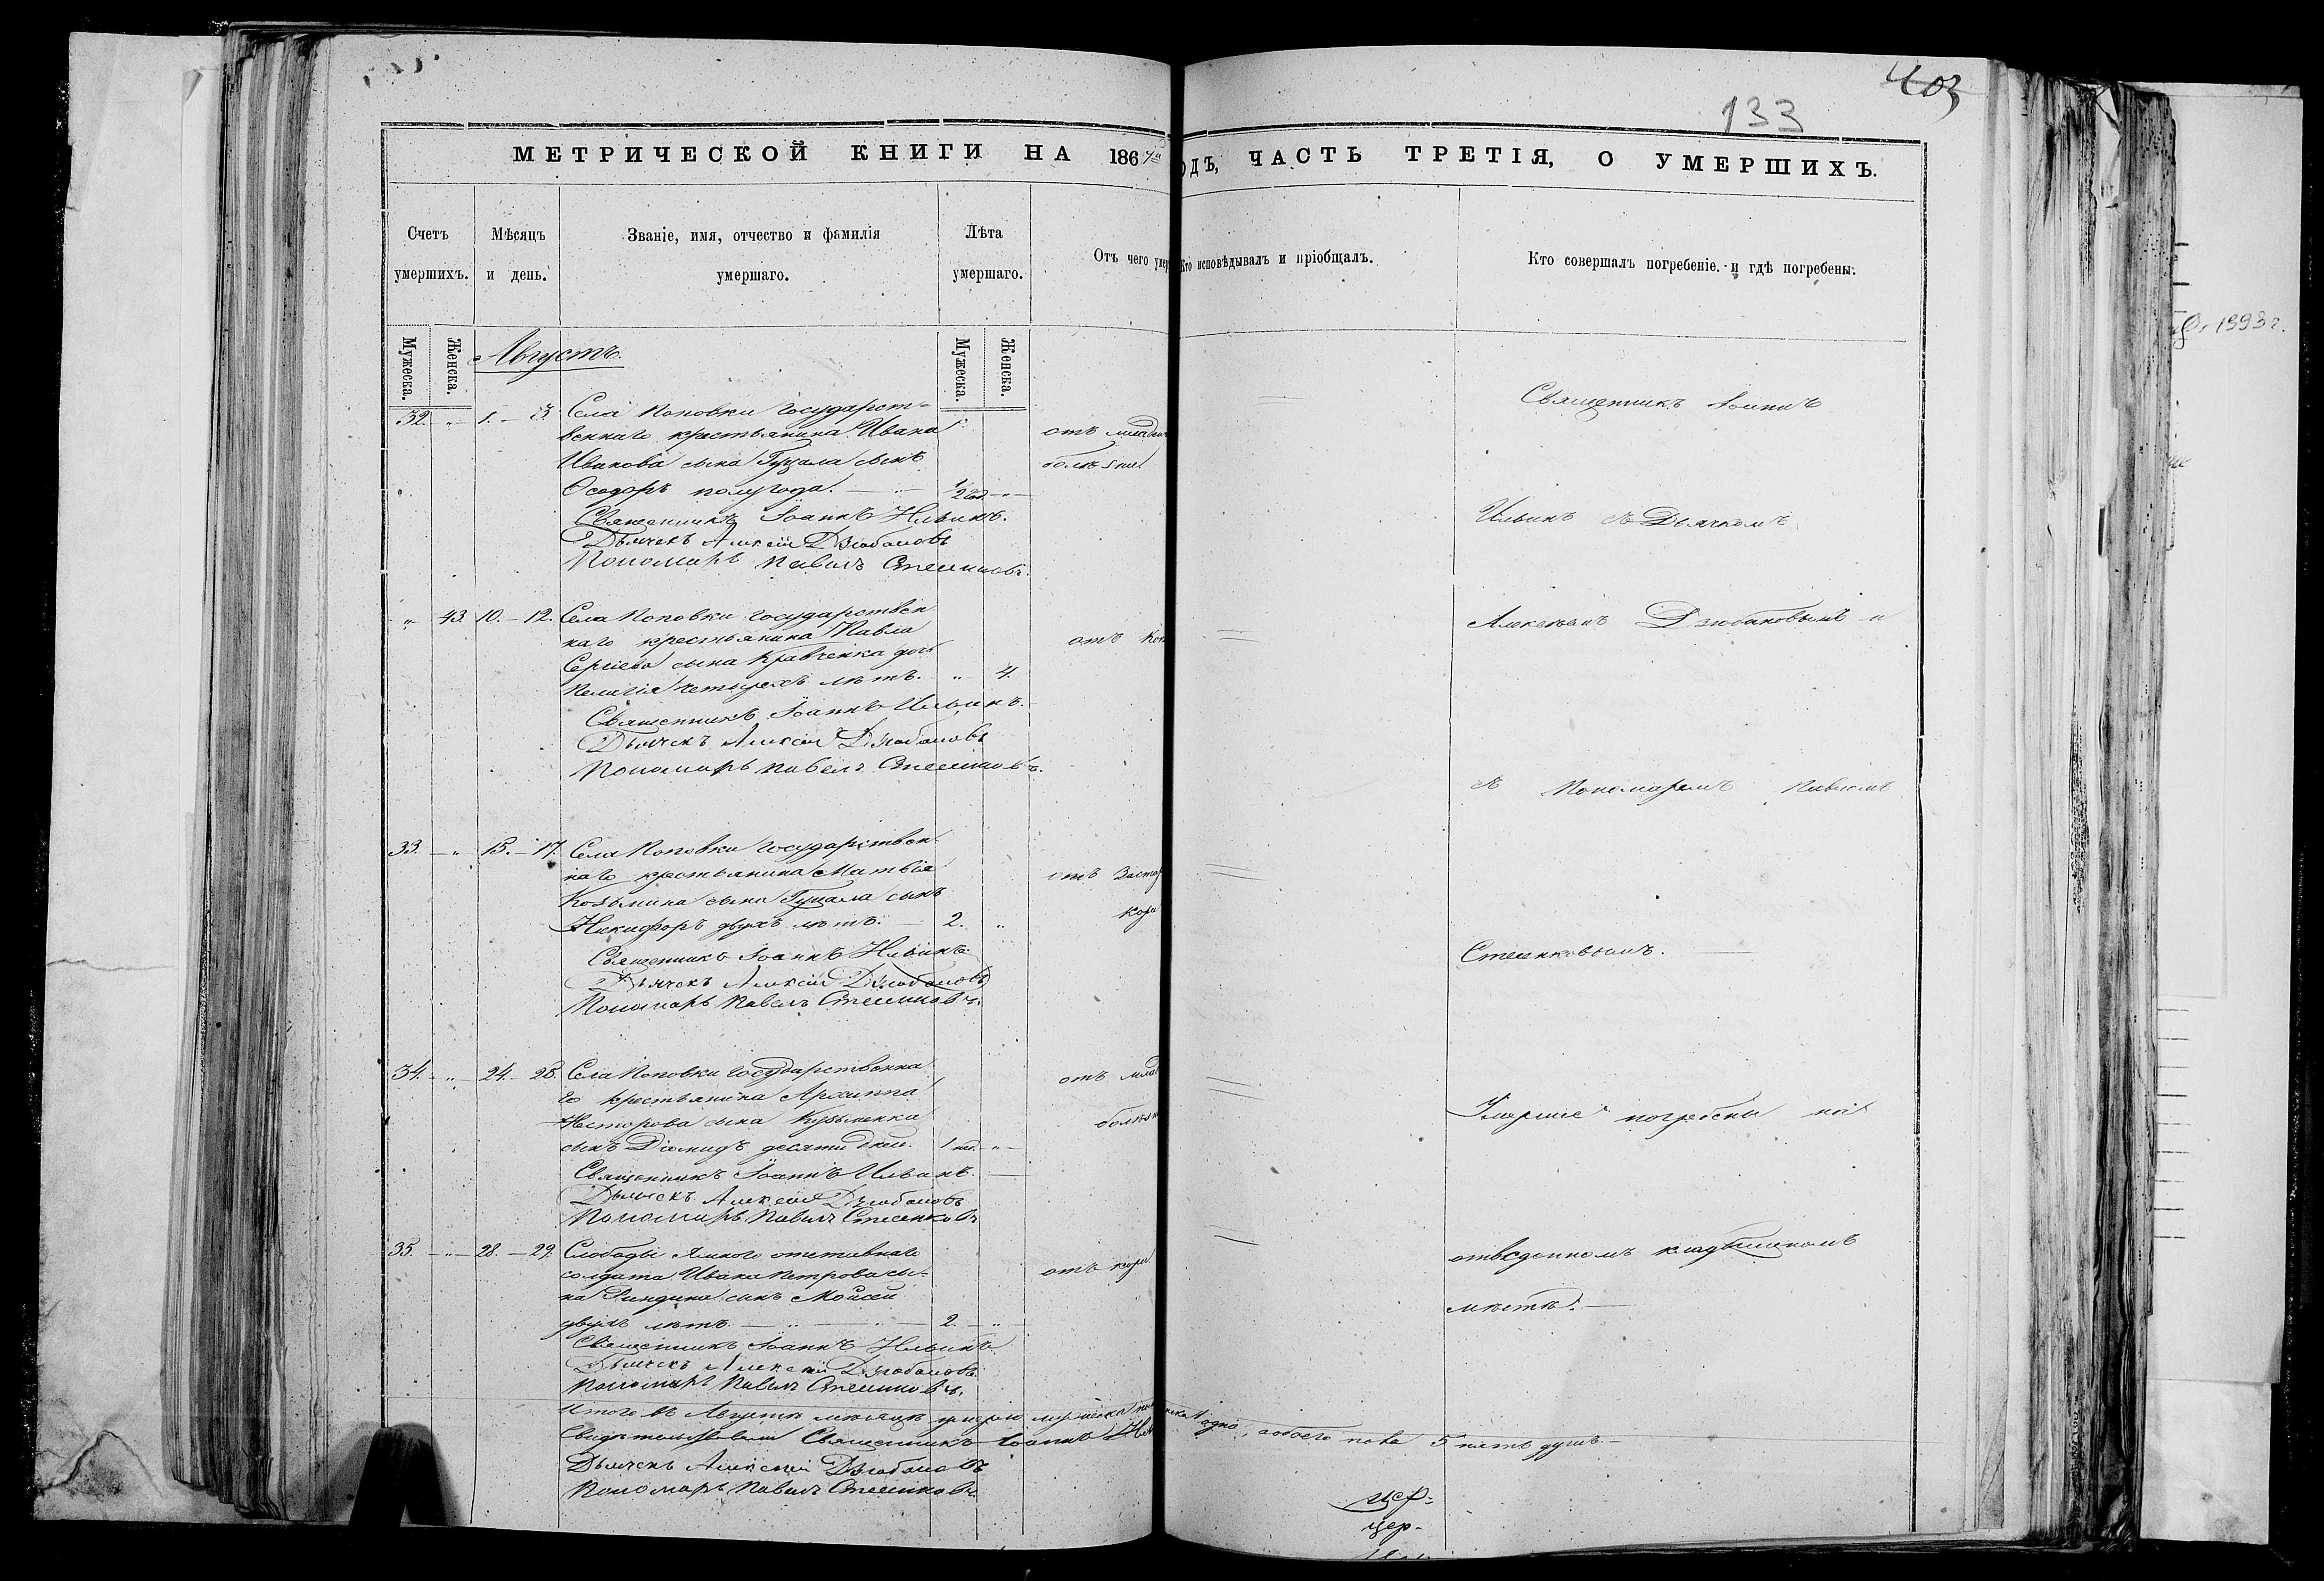 403
133
МЕТРИЧЕСКОЙ КНИГИ НА 1867й
ОДЪ, ЧАСТЬ ТРЕТІЯ, О УМЕРШИХЪ.
Счетъ умершихъ.
Мѣсяцъ и день.
Званіе, имя, отчество и фамилія умершаго.
Лѣта умершаго.
Отъ чего умер
Кто исповѣдывалъ и пріобщалъ.
Кто совершалъ погребеніе и гдѣ погребены.
Мужеска.
Женска.
Мужеска.
Женска.
Августъ.
32. „ 1. – 3. Села Поповки Государст-
веннаго крестьянина Ивана
отъ младен
Иванова сына Гуцала сынъ
болѣзни
Ѳеодоръ полугода. — 1/2 год. „
Священникъ Іоаннъ Ильинъ.
Дьячекъ Алексѣй Дзюбановъ
Пономарь Павелъ Стесенковъ.
„ 43. 10. – 12. Села Поповки Государствен
наго крестьянина Павла
отъ кок
Сергіева сына Кравченка дочь
Пелагія четырехъ лѣтъ. „ 4.
Священникъ Іоаннъ Ильинъ.
Дьячекъ Алексѣй Дзюбановъ
Пономарь Павелъ Стесенковъ.
33. „ 15. – 17. Села Поповки Государствен
наго крестьянина Матвія
отъ
Козьмина сына Гуцала сынъ
Никифоръ двухъ лѣтъ. 2. „
кори
Священникъ Іоаннъ Ильинъ.
Дьячекъ Алексѣй Дзюбановъ
Пономарь Павелъ Стесенковъ.
34. „ 24. – 25. Села Поповки Государственна
го крестьянина Архиппа
отъ млад
Нестерова сына Кузьменка
болѣзн
сынъ Діомидъ десяти дней. 1 нед. „
Священникъ Іоаннъ Ильинъ.
Дьячекъ Алексѣй Дзюбановъ
Пономарь Павелъ Стесенковъ
35. „ 28. – 29. Слободы Ямного отставнаго
солдата Ивана Петрова сы-
отъ кори
на сынъ Моисей
двухъ лѣтъ — „ — 2. „
Священникъ Іоаннъ Ильинъ
Дьячекъ Алексѣй Дзюбановъ
Пономарь Павелъ Стесенковъ.
Итого въ Августѣ мѣсяцѣ умерло мужеска одна, обоего пола 5 пять душъ.
Свидѣтельствовали Священникъ Іоаннъ Ил
Дьячекъ Алексѣй Дзюбановъ
Пономарь Павелъ Стесенковъ.
Священникъ Іоаннъ
Ильинъ съ Дьячкомъ
Алексѣемъ Дзюбановымъ и
съ Пономаремъ Павломъ
Стесенковымъ.
Умершіе погребены на
отведенномъ кладбищномъ
мѣстѣ.
цер-
цер-